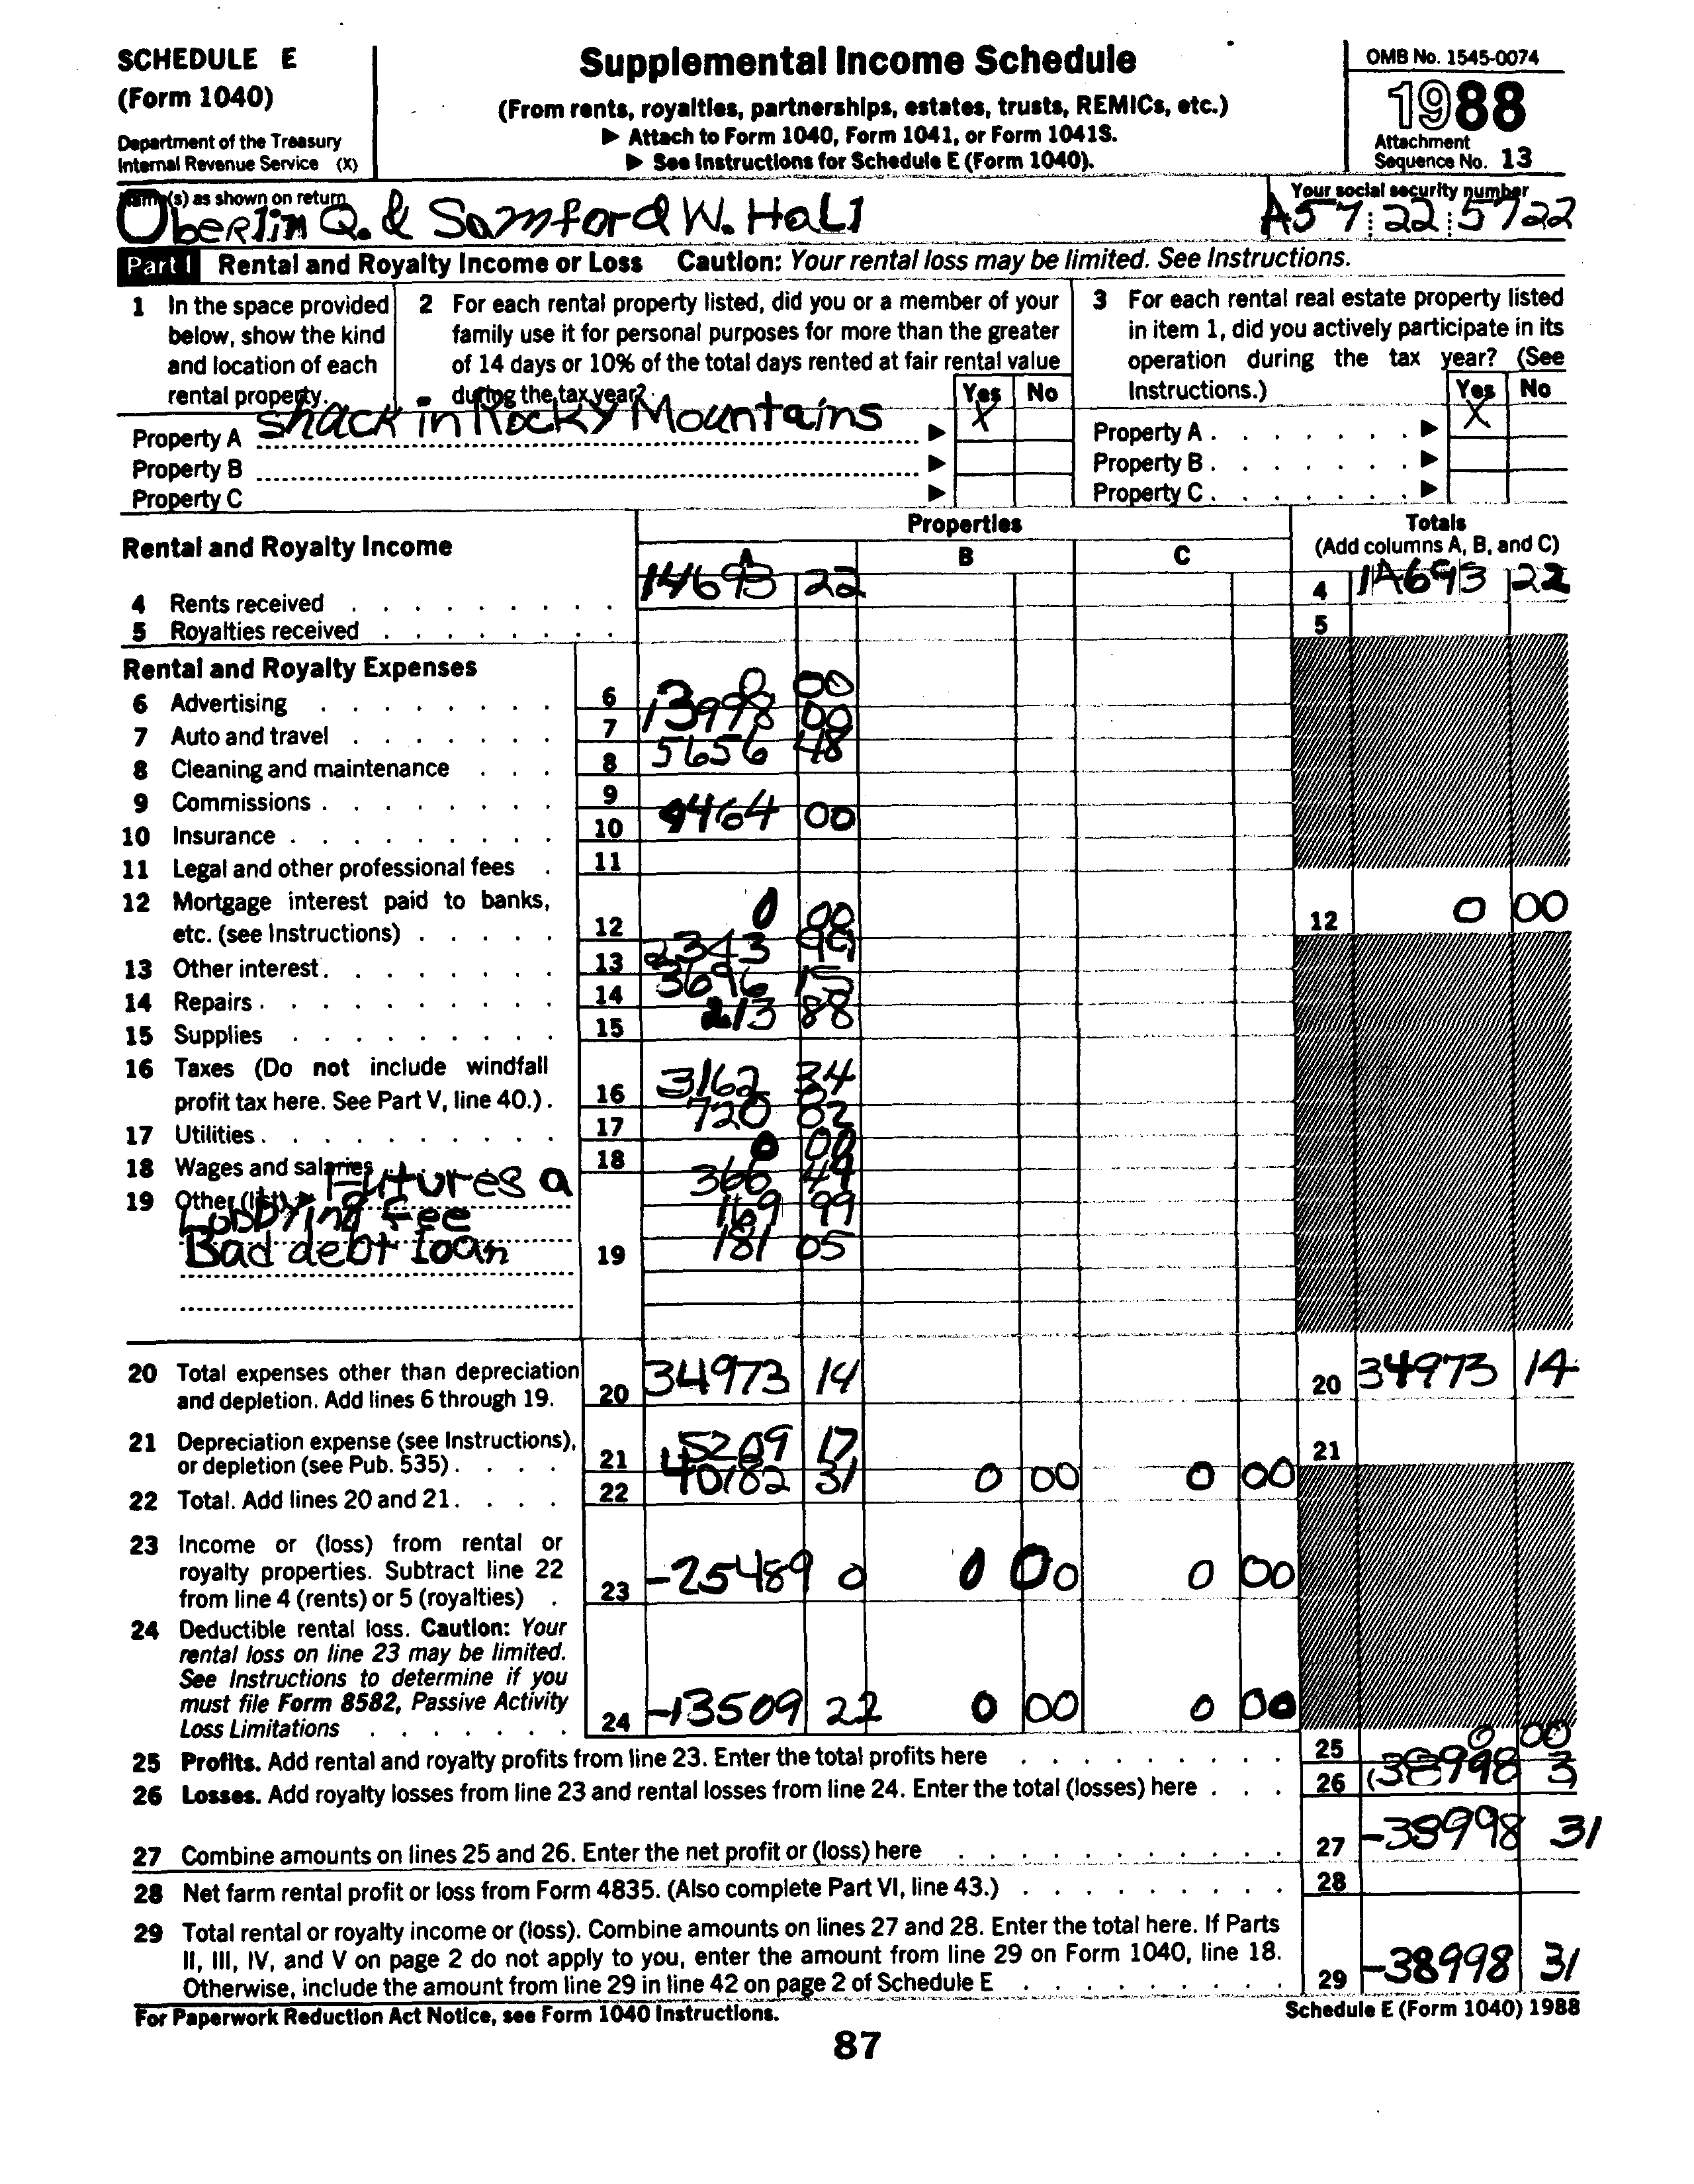 SCHEDULE E
(Form 1040)
Department of the Treasury
Internal Revenue Service (X)
Supplemental Income Schedule
(From rents, royalties, partnerships, estates, trusts, REMICs, etc.)
▶ Attach to Form 1040, Form 1041, or Form 1041S.
▶ See Instructions for Schedule E (Form 1040).
OMB No. 1545-0074
1988
Attachment
Sequence No. 13
Name(s) as shown on return
Oberlin Q. & Samford W. Hall
Your social security number
A57 22 5722
Part I Rental and Royalty Income or Loss Caution: Your rental loss may be limited. See Instructions.
1 In the space provided below, show the kind and location of each rental property.
2 For each rental property listed, did you or a member of your family use it for personal purposes for more than the greater of 14 days or 10% of the total days rented at fair rental value during the tax year?
Yes No
3 For each rental real estate property listed in item 1, did you actively participate in its operation during the tax year? (See Instructions.)
Yes No
Property A shack in Rocky Mountains ▶ X
Property A ▶ X
Property B ▶
Property B ▶
Property C ▶
Property C ▶
Rental and Royalty Income
Properties
A B C
Totals
(Add columns A, B, and C)
4 Rents received 14693 22 4 14693 22
5 Royalties received 5
Rental and Royalty Expenses
6 Advertising 6 0 00
7 Auto and travel 7 13998 00
8 Cleaning and maintenance 8 5656 48
9 Commissions 9
10 Insurance 10 9464 00
11 Legal and other professional fees 11
12 Mortgage interest paid to banks, etc. (see Instructions) 12 0 00 12 0 00
13 Other interest 13 2343 99
14 Repairs 14 3696 15
15 Supplies 15 213 88
16 Taxes (Do not include windfall profit tax here. See Part V, line 40.) 16 3162 34
17 Utilities 17 720 82
18 Wages and salaries 18 0 00
19 Other (list) ▶ Futures a 366 49
Lobbying fee 169 99
Bad debt loan 19 181 05
20 Total expenses other than depreciation and depletion. Add lines 6 through 19. 20 34973 14 20 34973 14
21 Depreciation expense (see Instructions), or depletion (see Pub. 535) 21 5209 17 21
22 Total. Add lines 20 and 21. 22 40182 31 0 00 0 00
23 Income or (loss) from rental or royalty properties. Subtract line 22 from line 4 (rents) or 5 (royalties) 23 -25489 0 0 00 0 00
24 Deductible rental loss. Caution: Your rental loss on line 23 may be limited. See Instructions to determine if you must file Form 8582, Passive Activity Loss Limitations 24 -13509 22 0 00 0 00
25 Profits. Add rental and royalty profits from line 23. Enter the total profits here 25 0 00
26 Losses. Add royalty losses from line 23 and rental losses from line 24. Enter the total (losses) here 26 (38998 3)
27 Combine amounts on lines 25 and 26. Enter the net profit or (loss) here 27 -38998 31
28 Net farm rental profit or loss from Form 4835. (Also complete Part VI, line 43.) 28
29 Total rental or royalty income or (loss). Combine amounts on lines 27 and 28. Enter the total here. If Parts II, III, IV, and V on page 2 do not apply to you, enter the amount from line 29 on Form 1040, line 18. Otherwise, include the amount from line 29 in line 42 on page 2 of Schedule E 29 -38998 31
For Paperwork Reduction Act Notice, see Form 1040 Instructions.
Schedule E (Form 1040) 1988
87